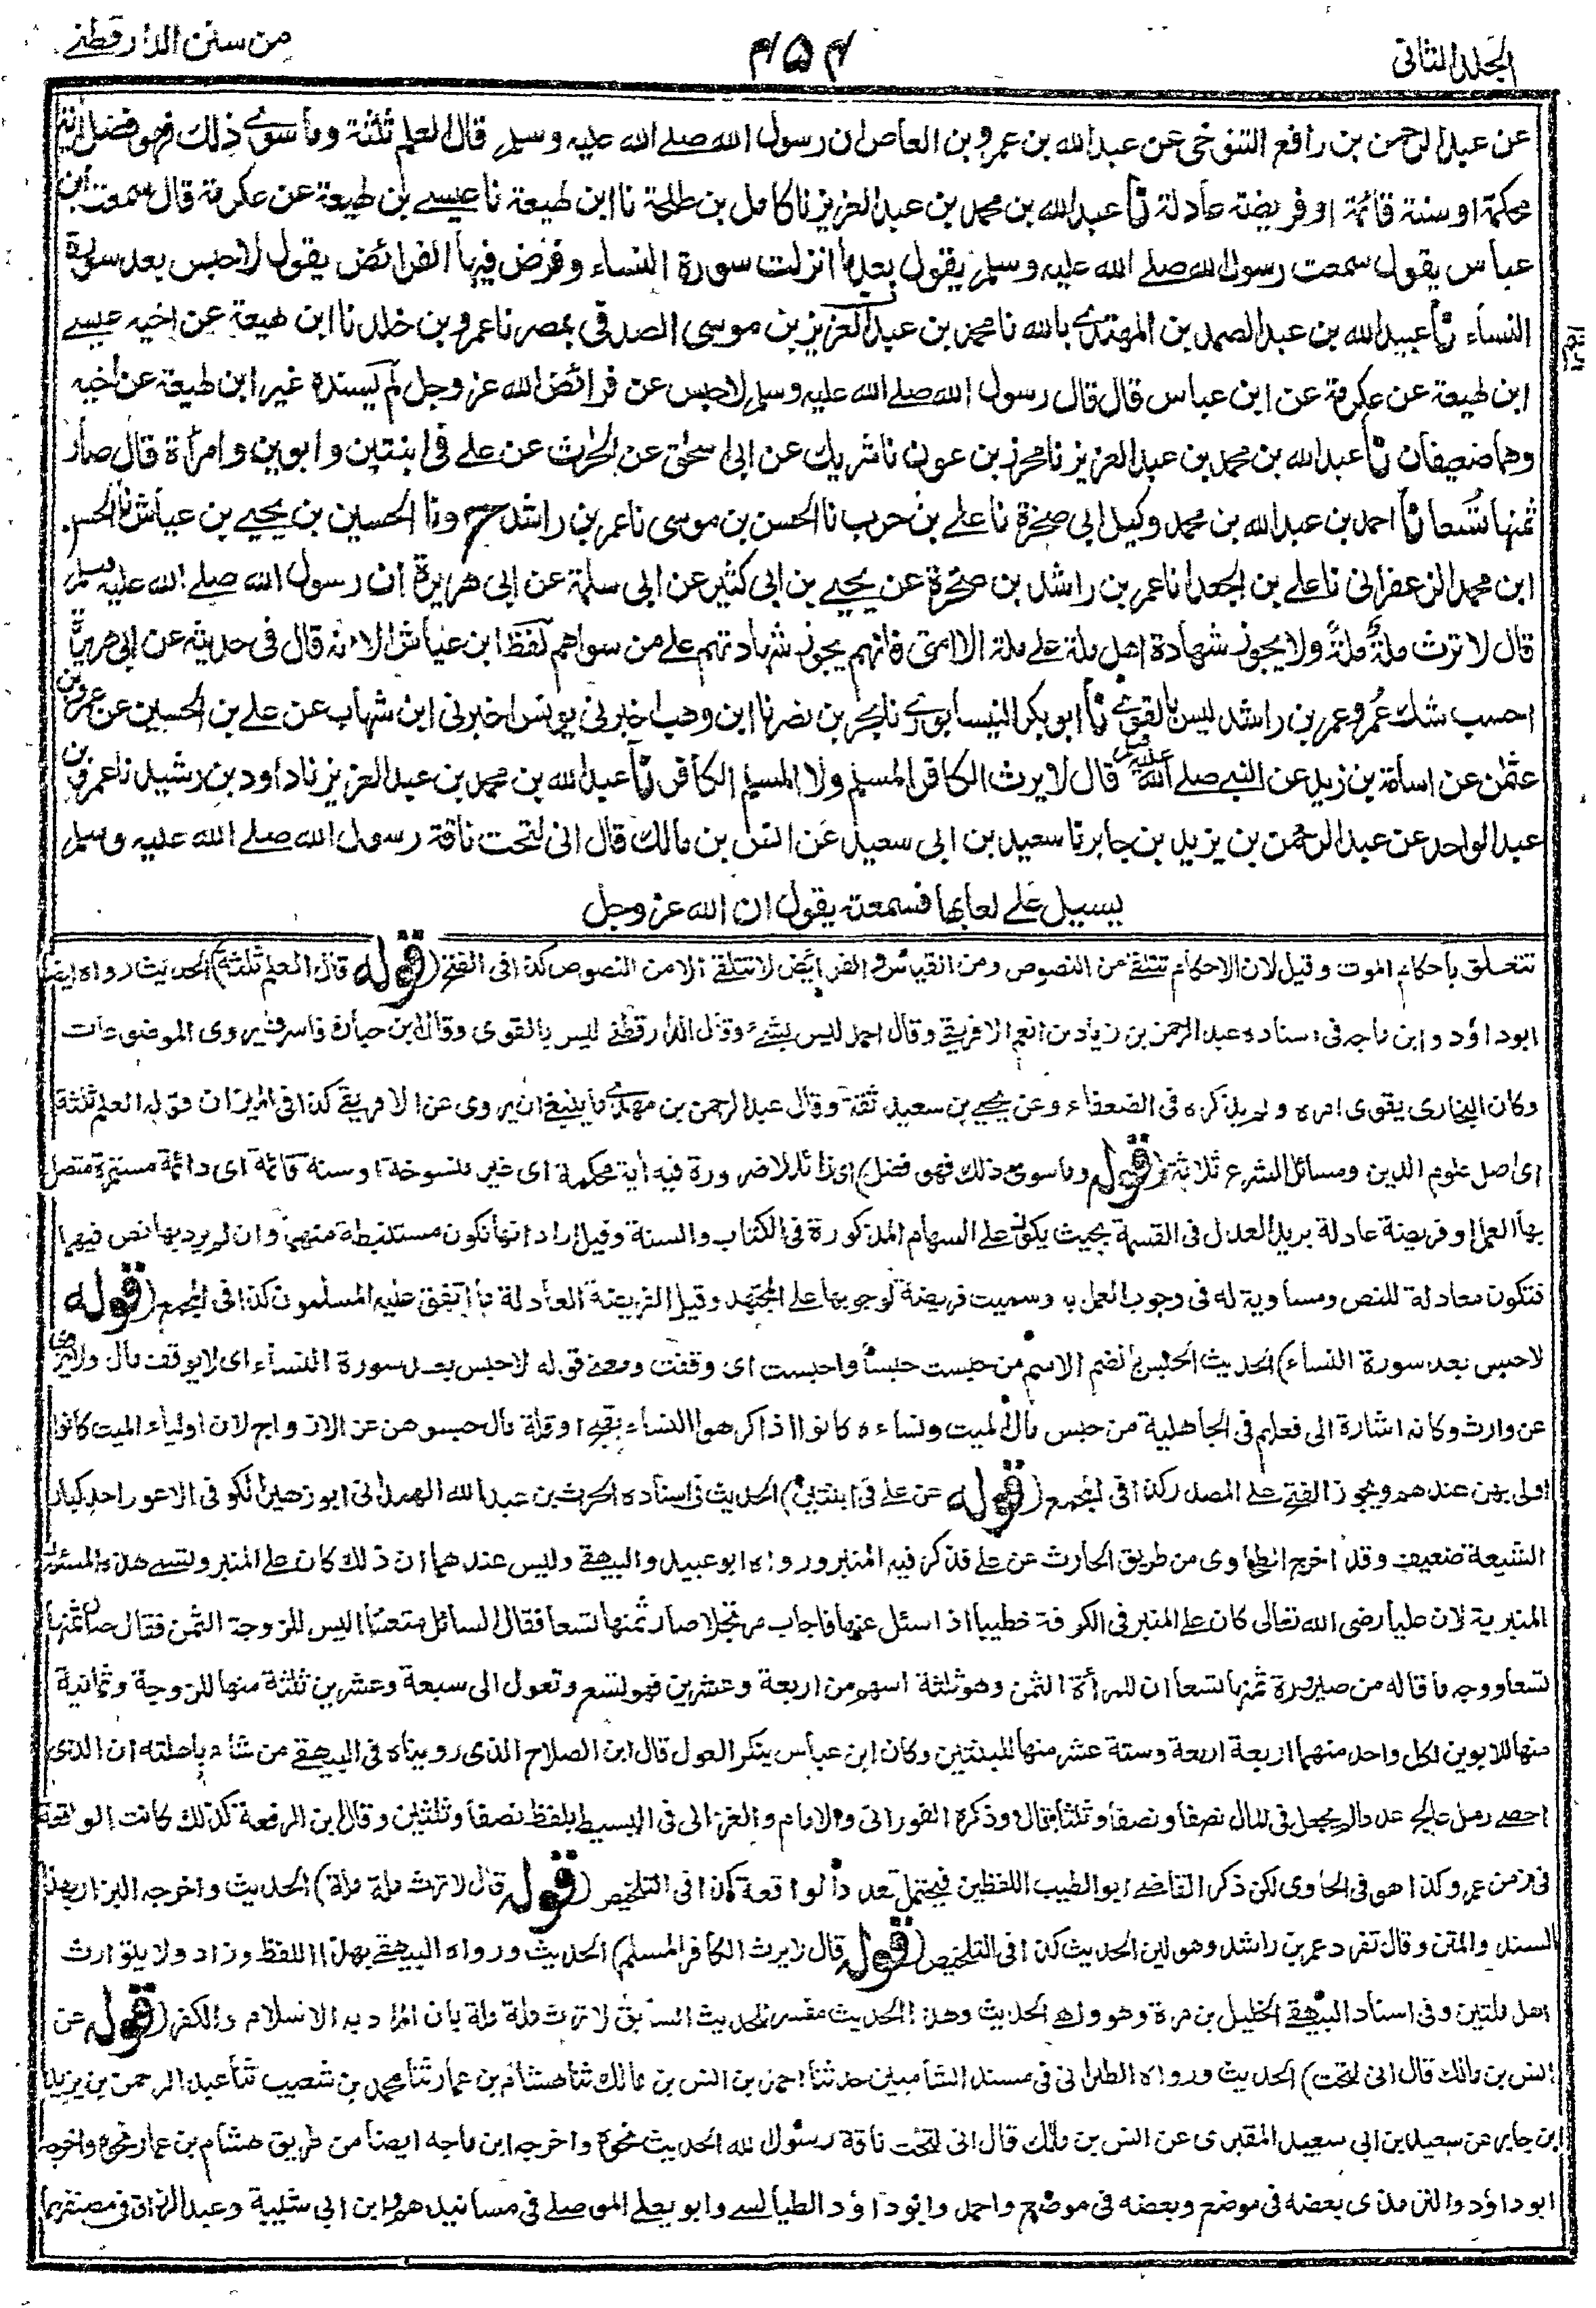 الجلد الثانى
۴۵۴
من سنن الدارقطنے
عن عبد الرحمن بن رافع التنوخى عن عبد الله بن عمرو بن العاص ان رسول الله صلے الله عليه وسلم قال العلم ثلثة وما سوے ذلك فهو فضل اية
محكمة او سنة قائمة او فريضة عادلة نا عبد الله بن محمد بن عبد العزيز نا كامل بن طلحة نا ابن لهيعة نا عيسے بن لهيعة عن عكرمة قال سمعت ابن
عباس يقول سمعت رسول الله صلے الله عليه وسلم يقول بعد ما انزلت سورة النساء وفرض فيها الفرائض يقول لا حبس بعد سورة
النساء نا عبيد الله بن عبد الصمد بن المهتدے بالله نا محمد بن عبد العزيز بن موسى الصدفى بمصر نا عمرو بن خالد نا ابن لهيعة عن اخيه عيسے
ابن لهيعة عن عكرمة عن ابن عباس قال قال رسول الله صلے الله عليه وسلم لا حبس عن فرائض الله عز وجل لم يسنده غير ابن لهيعة عن اخيه
وهما ضعيفان نا عبد الله بن محمد بن عبد العزيز نا محرز بن عون نا شريك عن ابى اسحٰق عن الحٰرث عن علے فى ابنتين وابوين وامرأة قال صار
ثمنها تُسعا نا احمد بن عبد الله بن محمد وكيل ابى صخرة نا علے بن حرب نا الحسن بن موسى نا عمر بن راشد ح ونا الحسين بن يحيے بن عياش نا الحسن
ابن محمد الزعفرانى نا علے بن الجعد نا عمر بن راشد بن صخرة عن يحيے بن ابى كثير عن ابى سلمة عن ابى هريرة ان رسول الله صلے الله عليه وسلم
قال لا ترث ملةٌ ملةً ولا يجوز شهادة اهل ملة علے ملة الا امتى فانهم يجوز شهادتهم علے من سواهم لفظ ابن عياش الا انه قال فى حديثه عن ابى هريرة
احسب شك عُمر وعمر بن راشد ليس بالقوے نا ابو بكر النيسابورے نا بحر بن نصر نا ابن وهب اخبرنى يونس اخبرنى ابن شهاب عن علے بن الحسين عن عمرو بن
عثمٰن عن اسامة بن زيد عن النبے صلے الله عليه وسلم قال لا يرث الكافر المسلم ولا المسلم الكافر نا عبد الله بن محمد بن عبد العزيز نا داود بن رشيد نا عمر بن
عبد الواحد عن عبد الرحمٰن بن يزيد بن جابر نا سعيد بن ابى سعيد عن انس بن مالك قال انى لتحت ناقة رسول الله صلے الله عليه وسلم
يسيل علے لعابها فسمعته يقول ان الله عز وجل
تتعلق باحكام الموت وقيل لان الاحكام تتلقے من النصوص ومن القياس والفرايض لا تتلقے الا من النصوص كذا فى الفتح (قوله قال العلم ثلثة) الحديث رواه ايضا
ابو داؤد وابن ماجه فى اسناده عبد الرحمن بن زياد بن انعم الافريقے وقال احمد ليس بشئ وقال الدارقطنے ليس بالقوى وقال ابن حبان فاسرف يروى الموضوعات
وكان البخارى يقوى امره ولم يذكره فى الضعفاء وعن يحيے بن سعيد ثقة وقال عبد الرحمن بن مهدے ما ينبغے ان يروى عن الافريقے كذا فى الميزان قوله العلم ثلثة
اى اصل علوم الدين ومسائل الشرع ثلاثة (قوله وما سوى ذلك فهو فضل) اى زائد لا ضرورة فيه اية محكمة اى غير منسوخة او سنة قائمة اى دائمة مستمرة متصل
بها العمل او فريضة عادلة يريد العدل فى القسمة بحيث يكون علے السهام المذكورة فى الكتاب والسنة وقيل اراد انها تكون مستنبطة منهما وان لم يرد بها نص فيهما
فتكون معادلة للنص ومساوية له فى وجوب العمل به وسميت فريضة لوجوبها علے المجتهد وقيل الفريضة العادلة ما اتفق عليه المسلمون كذا فى المجمع (قوله
لا حبس بعد سورة النساء) الحديث الحبس بالضم الاسم من حبست حبسا واحبست اى وقفت ومعنے قوله لا حبس بعد سورة النساء اى لا يوقف مال ولا يزوى
عن وارث وكانه اشارة الى فعلهم فى الجاهلية من حبس مال الميت ونساءه كانوا اذا كرهوا النساء بقبح او قلة مال حبسوهن عن الازواج لان اولياء الميت كانوا
اولى بهن عندهم ويجوز الفتح علے المصدر كذا فى المجمع (قوله عن علے فى ابنتين) الحديث فى اسناده الحرث بن عبد الله الهمدانى ابو زهير الكوفى الاعور احد كبار
الشيعة ضعيف وقد اخرج الطحاوى من طريق الحارث عن علے فذكر فيه المنبر ورواه ابو عبيد والبيهقے وليس عندهما ان ذلك كان علے المنبر وتسمے هذه المسئلة
المنبرية لان عليا رضى الله تعالى كان علے المنبر فى الكوفة خطيبا اذ اسئل عنها فاجاب مرتجلا صار ثمنها تسعا فقال السائل متعنتا اليس للزوجة الثمن فقال صار ثمنها
تسعا ووجه ما قاله من صيرورة ثمنها تسعا ان للمرأة الثمن وهو ثلثة اسهم من اربعة وعشرين فهو تسع وتعول الى سبعة وعشرين ثلثة منها للزوجة وثمانية
منها للابوين لكل واحد منهما اربعة اربعة وستة عشر منها للبنتين وكان ابن عباس ينكر العول قال ابن الصلاح الذى رويناه فى البيهقے من شاء باهلته ان الذى
احصے رمل عالج عددا لم يجعل فى المال نصفا ونصفا وثلثا قال وذكره الفورانى والامام والغزالى فى البسيط بلفظ نصفا وثلثين وقال ابن الرفعة كذلك كانت الواقعة
فى زمن عمر وكذا هو فى الحاوى لكن ذكر القاضے ابو الطيب اللفظين فيحتمل تعدد الواقعة كذا فى التلخيص (قوله قال لا ترث ملة ملة) الحديث واخرجه البزار بهذا
السند والمتن وقال تفرد عمر بن راشد وهو لين الحديث كذا فى التلخيص (قوله قال لا يرث الكافر المسلم) الحديث ورواه البيهقے بهذا اللفظ وزاد ولا يتوارث
اهل ملتين وفى اسناد البيهقے الخليل بن مرة وهو واهے الحديث وهذا الحديث مفسر للحديث السابق لا ترث ملة ملة بان المراد به الاسلام والكفر (قوله عن
انس بن مالك قال انى لتحت) الحديث ورواه الطبرانى فى مسند الشاميين حدثنا احمد بن انس بن مالك ثنا هشام بن عمار ثنا محمد بن شعيب ثنا عبد الرحمن بن يزيد
ابن جابر عن سعيد بن ابى سعيد المقبرى عن انس بن مالك قال انى لتحت ناقة رسول الله الحديث نحوه واخرجه ابن ماجه ايضا من طريق هشام بن عمار نحوه واخرجه
ابو داؤد والترمذى بعضه فى موضع وبعضه فى موضع واحمد وابو داؤد الطيالسے وابو يعلے الموصلے فى مسانيدهم وابن ابى شيبة وعبد الرزاق فى مصنفيهما